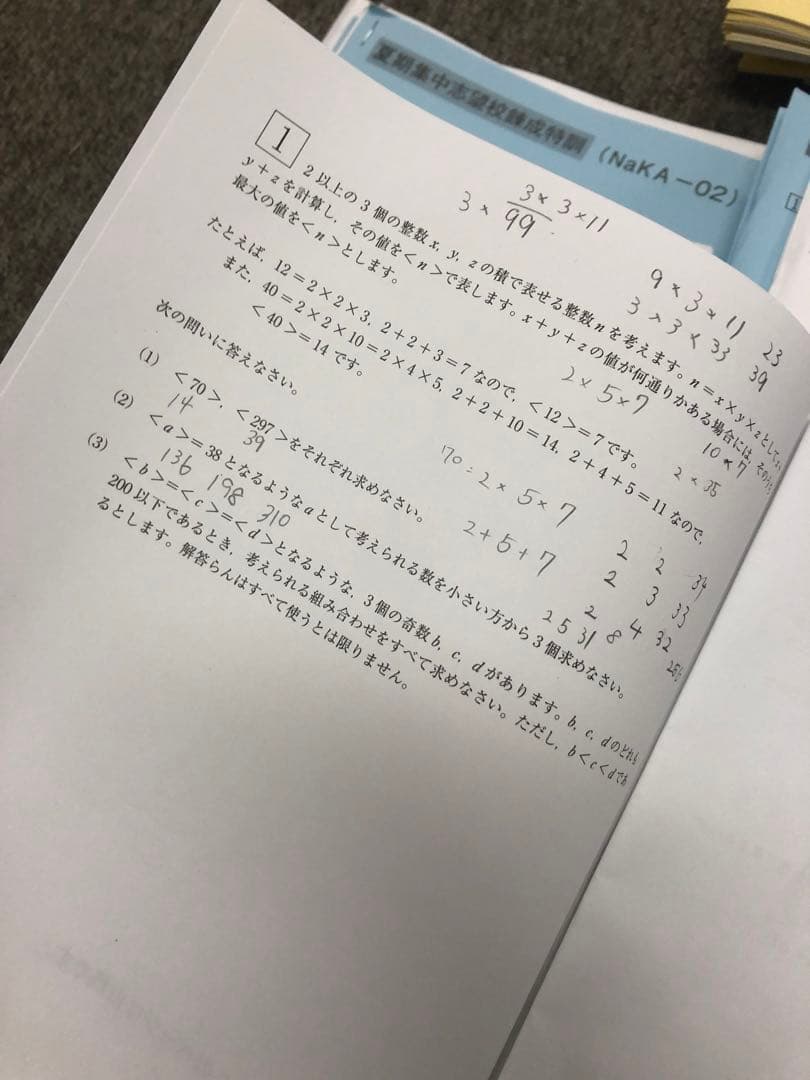 夏期集中志望校錬成特訓 (NaKA-02)
1
2以上の3個の整数x, y, zの積で表せる整数nを考えます。n=x×y×zとして,
y+zを計算し, その値を<n>で表します。x+y+zの値が何通りかある場合には, その
最大の値を<n>とします。
たとえば, 12=2×2×3, 2+2+3=7なので, <12>=7です。
また, 40=2×2×10=2×4×5, 2+2+10=14, 2+4+5=11なので,
<40>=14です。
次の問いに答えなさい。
(1) <70>, <297>をそれぞれ求めなさい。
14 39
(2) <a>=38となるようなaとして考えられる数を小さい方から3個求めなさい。
136 198 310
(3) <b>=<c>=<d>となるような, 3個の奇数b, c, dがあります。b, c, dのどれも
200以下であるとき, 考えられる組み合わせをすべて求めなさい。ただし, b<c<dであ
るとします。解答らんはすべて使うとは限りません。
3×
3×3×11
99
9×3×11 23
3×3×33 39
2×5×7
10×7
2×35
70=2×5×7
2+5+7
2 2 34
2 3 33
2 4 32
2 5 31 8
256